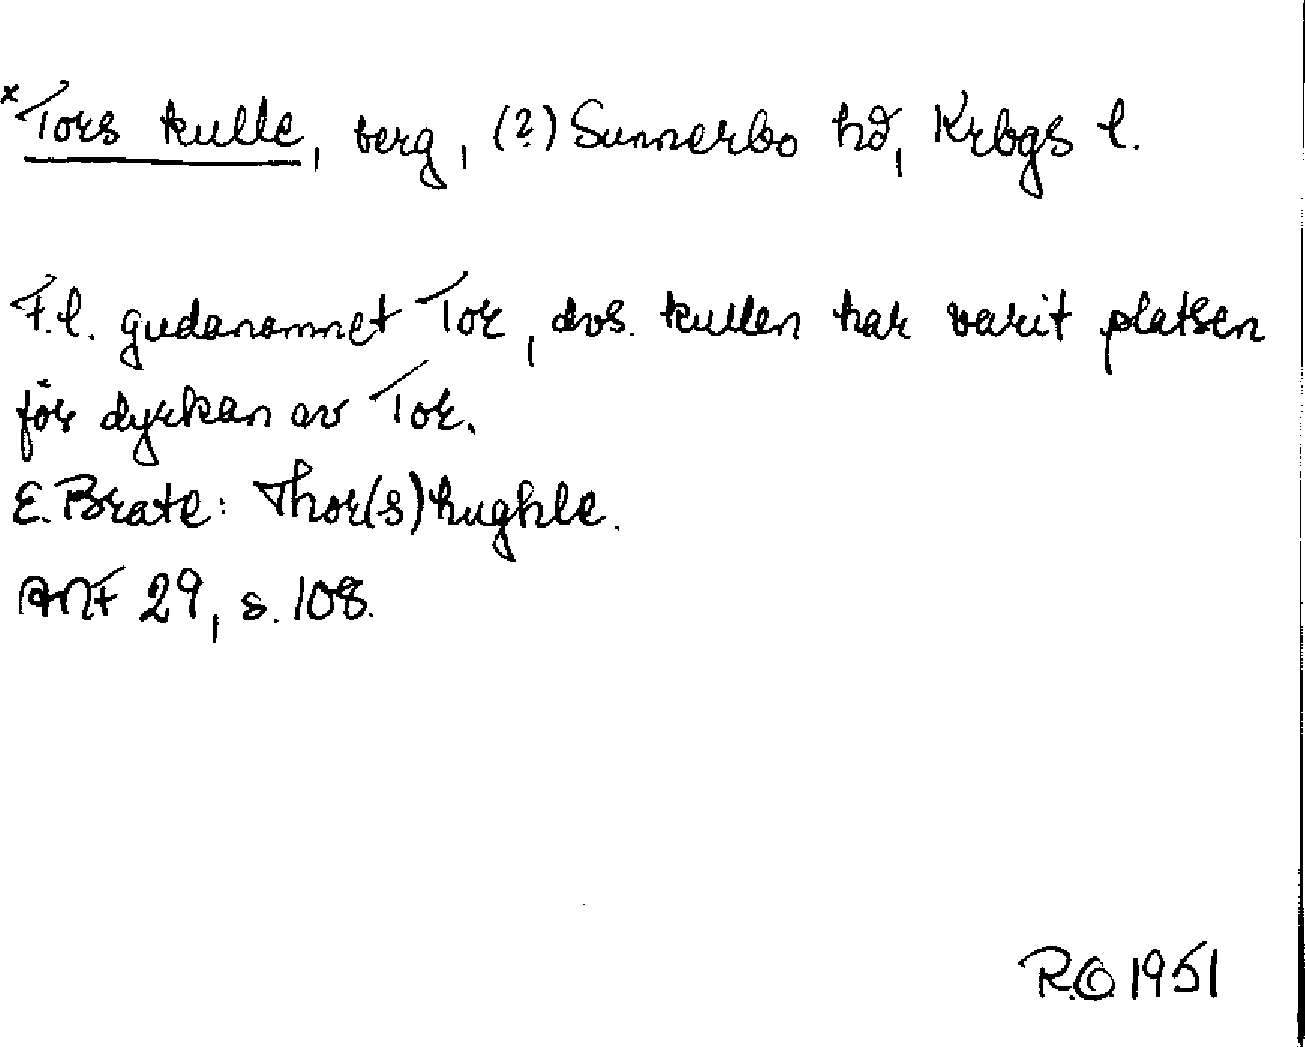 ×Tors kulle, berg, (?) Sunnerbo hd, Krbgs l.
F.l. gudanamnet Tor, dvs. kullen har varit platsen
för dyrkan av Tor.
E. Brate: Thor(s)hughle.
ANF 29, s. 108.
R.O 1951